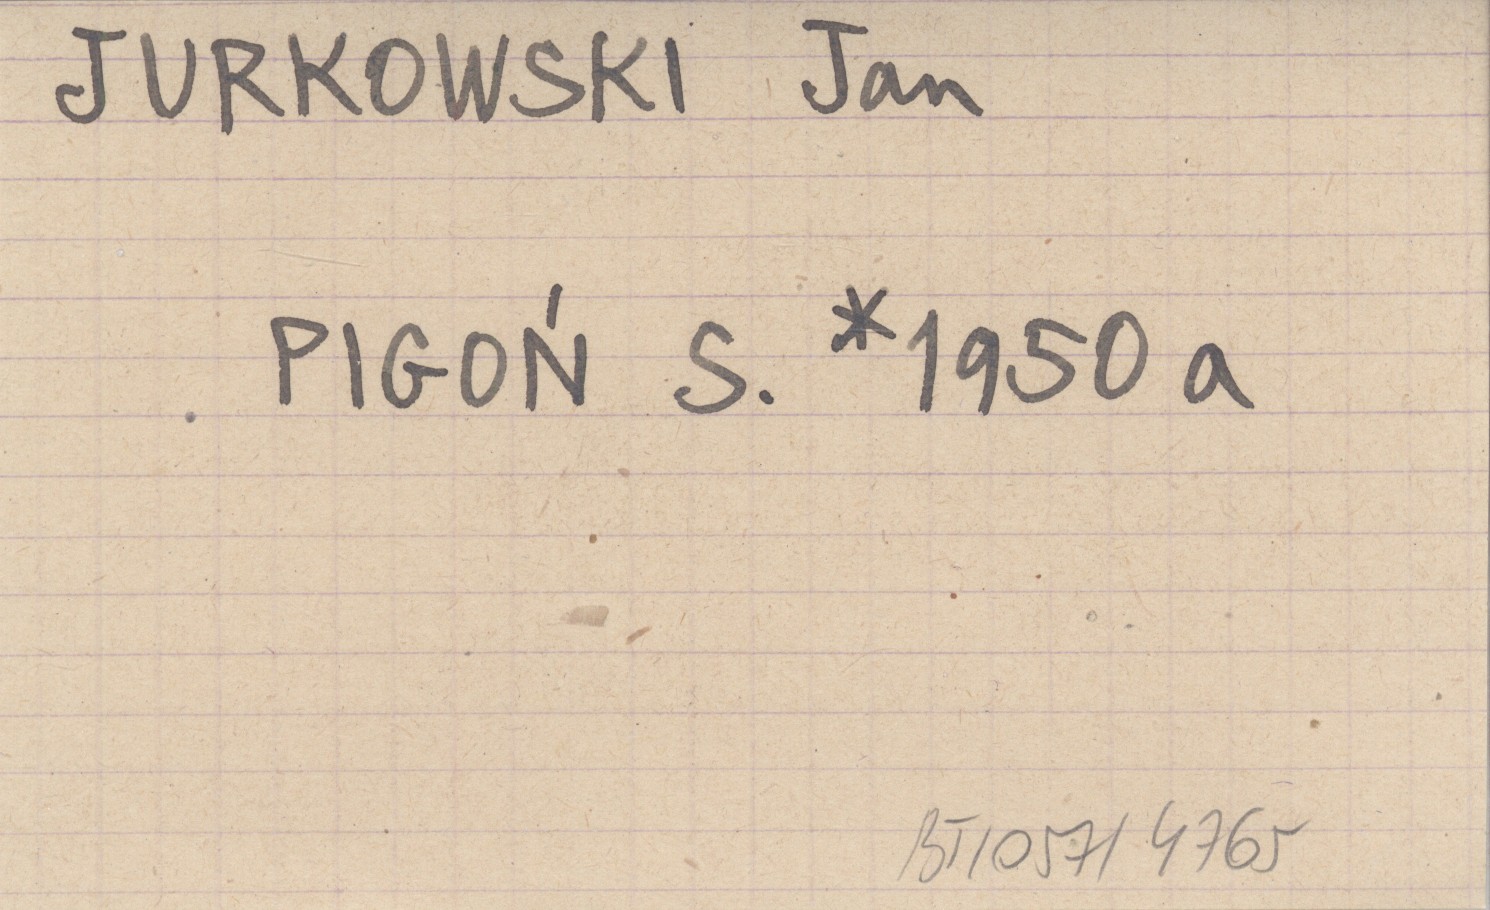 JURKOWSKI Jan
PIGOŃ S. *1950 a
BT/057/4765